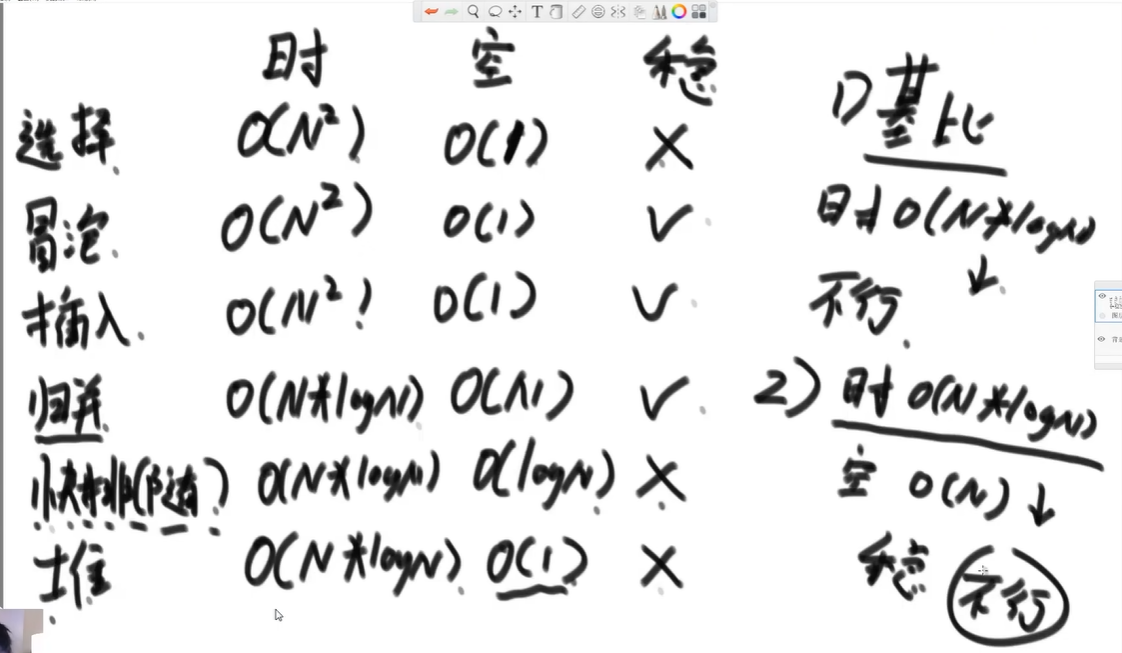 时 空 稳
选择 O(N²) O(1) ×
冒泡 O(N²) O(1) √
插入 O(N²) O(1) √
归并 O(N*logN) O(N) √
快排(随) O(N*logN) O(logN) ×
堆 O(N*logN) O(1) ×
1) 基比
时 O(N*logN)
↓
不行
2) 时 O(N*logN)
空 O(N) ↓
稳 不行